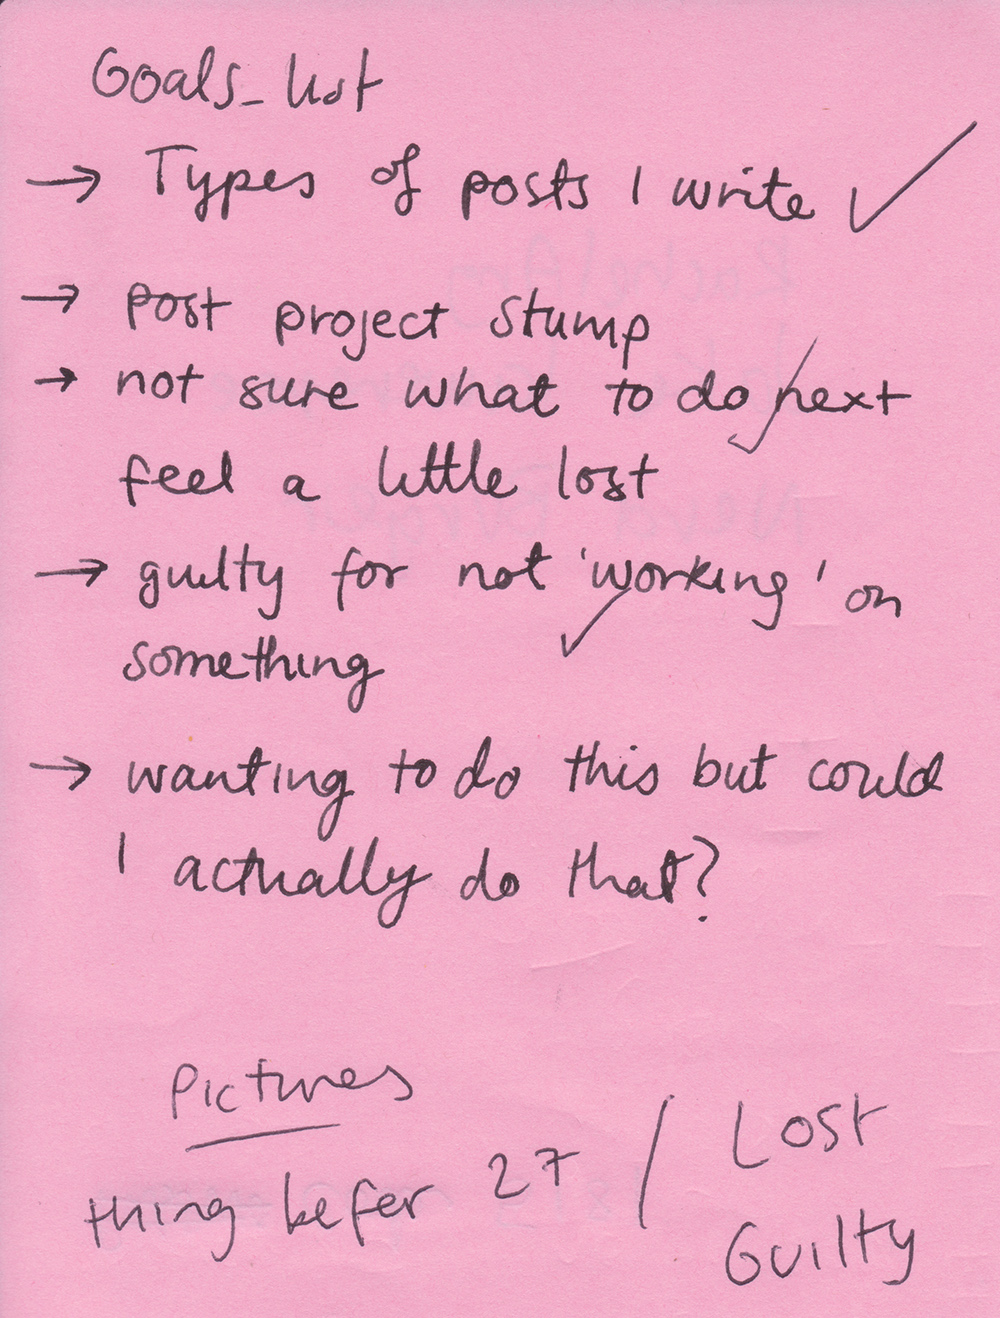 Goals_list
→ Types of posts I write ✓
→ post project stump
→ not sure what to do next
feel a little lost
→ guilty for not 'working' on
something
→ wanting to do this but could
I actually do that?
Pictures
thing befer 27 / Lost
Guilty